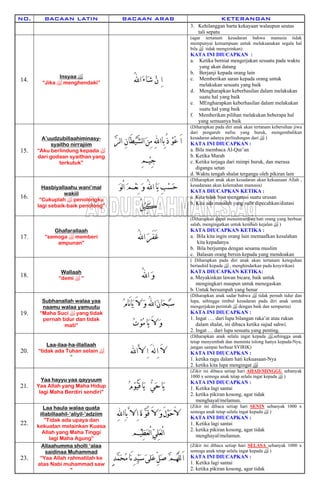 NO. BACAAN LATIN BACAAN ARAB KETERANGAN
3. Kehilanggan harta kekayaan walaupun seutas
tali sepatu
14.
Insyaa ﷲ
"Jika ﷲ menghendaki"
اِنْ شَآءَ اللهُ
(agar tertanam kesadaran bahwa manusia tidak
mempunyai kemampuan untuk melaksanakan segala hal
bila ﷲ tidak mengizinkan)
KATA INI DIUCAPKAN :
a. Ketika berniat mengerjakan sesuatu pada waktu
yang akan datang
b. Berjanji kepada orang lain
c. Memberikan saran kepada orang untuk
melakukan sesuatu yang baik
d. Mengharapkan keberhasilan dalam melakukan
suatu hal yang baik
e. MEngharapkan keberhasilan dalam melakukan
suatu hal yang baik
f. Memberikan pilihan melakukan beberapa hal
yang semuanya baik
15.
A'uudzubillaahiminasy-
syaitho nirrajiim
"Aku berlindung kepada ﷲ
dari godaan syaithan yang
terkutuk"
اَعُوْذُ بِاللهِ مِنَ الشَّيْطَانِ الرَّجِيْمِ
(Diharapkan pada diri anak akan tertanam kebersihan jiwa
dari pengaruh nafsu yang buruk, mengembalikan
kesadaran adanya perlindungan dari ﷲ )
KATA INI DIUCAPKAN :
a. Bila membaca Al-Qur'an
b. Ketika Marah
c. Ketika terjaga dari mimpi buruk, dan merasa
diganggu setan
d. Waktu tengah shalat terganggu oleh pikiran lain
16.
Hasbiyallaahu wani'mal
wakiil
"Cukuplah ﷲ penolongku
lagi sebaik-baik penolong"
حَسْبِيَ اللهُ وَنِعْمَ الْوَكِيْلُ
(Diharapkan anak akan kesadaran akan kekuasaan Allah ,
kesadaran akan kelemahan manusia)
KATA INI DIUCAPKAN KETIKA :
a. Kita tidak bisa mengatasi suatu urusan
b. Kita ada masalah yang sulit dipecahkan/diatasi
17.
Ghafarallaah
"semoga ﷲ memberi
ampunan"
(Diharapkan dapat menentramkan hati orang yang berbuat
salah, mengingatkan untuk kembali kejalan ﷲ )
KATA INI DIUCAPKAN KETIKA :
a. Bila kita ingin orang lain memaafkan kesalahan
kita kepadanya
b. Bila berjumpa dengan sesama muslim
c. Balasan orang bersin kepada yang mendoakan
18.
Wallaah
"demi ﷲ "
( Diharapkan pada diri anak akan tertanam keteguhan
bertauhid kepada ﷲ , menghindarkan pada kesyirikan)
KATA INI DIUCAPKAN KETIKA:
a. Meyakinkan lawan bicara, baik untuk
mengingkari maupun untuk menegaskan
b. Untuk bersumpah yang benar
19.
Subhanallah walaa yaa
naamu walaa yamuutu
"Maha Suci ﷲ yang tidak
pernah tidur dan tidak
mati"
(Diharapkan anak sadar bahwa ﷲ tidak pernah tidur dan
lupa, sehingga timbul kesadaran pada diri anak untuk
mengerjakan perintah ﷲ dengan baik dan sempurna)
KATA INI DIUCAPKAN :
1. Ingat … dari lupa bilangan raka'at atau rukun
dalam shalat, ini dibaca ketika sujud sahwi.
2. Ingat … dari lupa sesuatu yang penting
20.
Laa-ilaa-ha-illallaah
"tidak ada Tuhan selain ﷲ
"
لاَ اِلٰهَ اِلاَّ اللهُ
(Diharapkan anak selalu ingat kepada ﷲ,sehingga anak
tetap menyembah dan meminta tolong hanya kepada-Nya,
jangan sampai berbuat SYIRIK)
KATA INI DIUCAPKAN :
1. ketika ragu dalam hati kekuasaan-Nya
2. ketika kita lupa mengingat ﷲ
21.
Yaa hayyu yaa qayyuum
Yaa Allah yang Maha Hidup
lagi Maha Berdiri sendiri"
يَا حَيُّ يَا قَيُّوْمُ
(Zikir ini dibaca setiap hari AHAD/MINGGU sebanyak
1000 x semoga anak tetap selalu ingat kepada ﷲ )
KATA INI DIUCAPKAN
1. Ketika lagi santai
2. ketika pikiran kosong, agar tidak
menghayal/melamun.
22.
Laa haula walaa quata
illabillaahil-'aliyil-'adziim
"Tidak ada upaya dan
kekuatan melainkan Kuasa
Allah yang Maha Tinggi
lagi Maha Agung"
لاَ حَوْلَ وَلاَ قُوَّةَ اِلاَّ بِاللهِ الْعَلِيِّ الْعَظِيْمِ
(Zikir ini dibaca setiap hari SENIN sebanyak 1000 x
semoga anak tetap selalu ingat kepada ﷲ )
KATA INI DIUCAPKAN :
1. Ketika lagi santai
2. ketika pikiran kosong, agar tidak
menghayal/melamun.
23.
Allaahumma sholli 'alaa
saidinaa Muhammad
"Yaa Allah rahmatilah ke
atas Nabi muhammad saw
اَللّٰهُمَّ صَلِّ عَلَى سَيِّدِنَا مُحَمَّدٍ
(Zikir ini dibaca setiap hari SELASA sebanyak 1000 x
semoga anak tetap selalu ingat kepada ﷲ )
KATA INI DIUCAPKAN :
1. Ketika lagi santai
2. ketika pikiran kosong, agar tidak